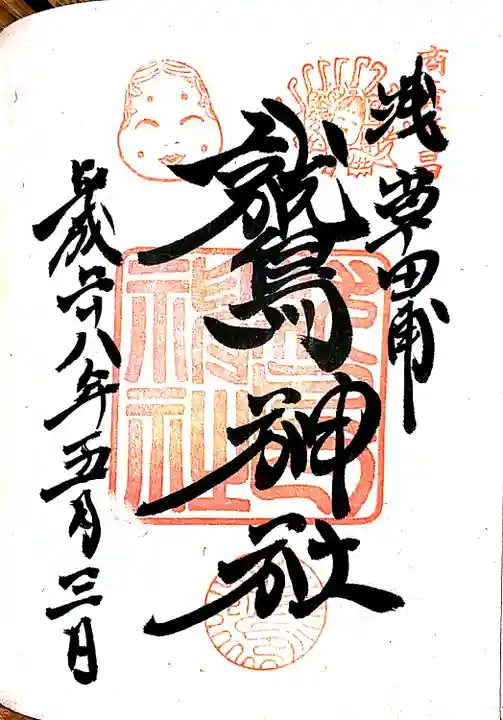 浅草田甫
鷲神社
平成廿八年五月三日